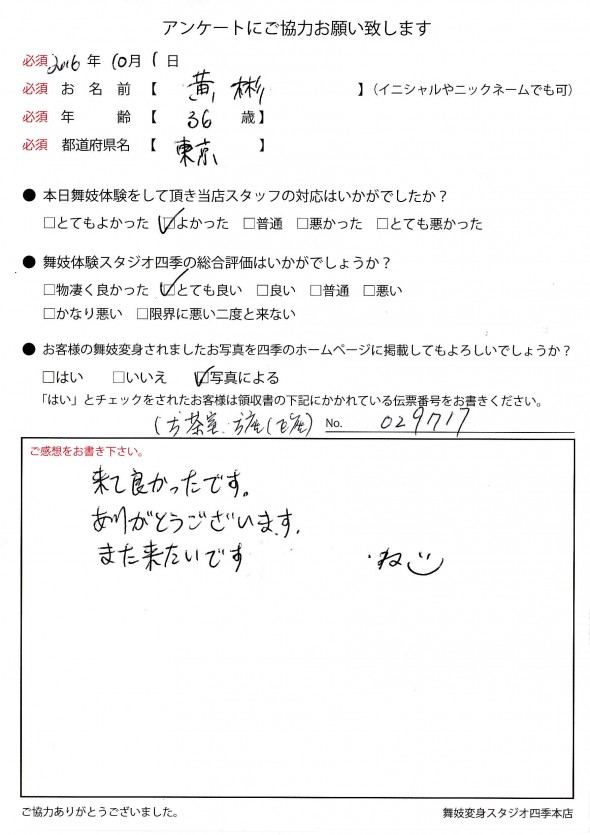 アンケートにご協力お願い致します
必須 2016 年 10 月 1 日
必須 お 名 前 【 黄 彬 】(イニシャルやニックネームでも可)
必須 年 齢 【 36 歳】
必須 都道府県名 【 東京 】
● 本日舞妓体験をして頂き当店スタッフの対応はいかがでしたか?
□とてもよかった ☑よかった □普通 □悪かった □とても悪かった
● 舞妓体験スタジオ四季の総合評価はいかがでしょうか?
□物凄く良かった ☑とても良い □良い □普通 □悪い
□かなり悪い □限界に悪い二度と来ない
● お客様の舞妓変身されましたお写真を四季のホームページに掲載してもよろしいでしょうか?
□はい □いいえ ☑写真による
「はい」とチェックをされたお客様は領収書の下記にかかれている伝票番号をお書きください。
お茶室 No. 029717
ご感想をお書き下さい。
来て良かったです。
ありがとうございます.
また来たいです ね
ご協力ありがとうございました。 舞妓変身スタジオ四季本店